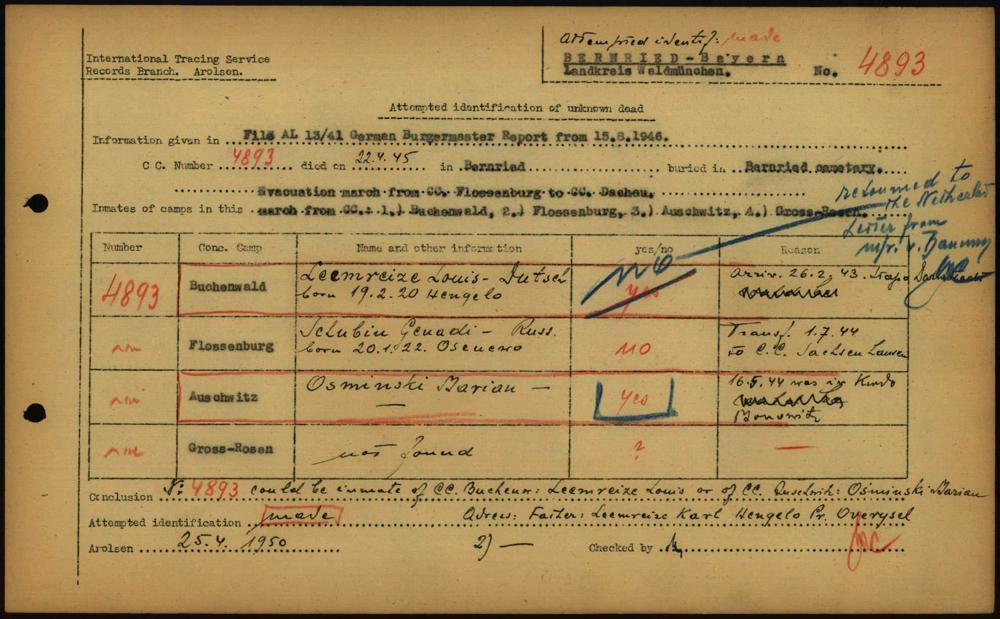 Attempted identif: made
International Tracing Service
Records Branch. Arolsen.
BERNRIED-Bayern
Landkreis Waldmünchen.
No. 4893
Attempted identification of unknown dead
Information given in File AL 13/41 German Burgermaster Report from 15.8.1946.
C C. Number 4893 died on 22.4.45 in Bernried buried in Bernried cemetary.
Evacuation march from CC. Flossenburg to CC. Dachau.
Inmates of camps in this march from CC.: 1.) Buchenwald, 2.) Flossenburg, 3.) Auschwitz, 4.) Gross-Rosen.
returned to
the Netherlands
Letter from
Number Conc. Camp Name and other information yes/no Reason
4893 Buchenwald Leemreize Louis - Dutsch
born 19.2.20 Hengelo
no yes
Arriv. 26.2. 43.
Flossenburg Schubin Genadi - Russ.
born 20.1.22. Osenewo
no
Transf. 1.7.44
to C.C. Sachsenhausen
Auschwitz Osminski Marian -
yes
16.5.44 was in Kdo
Monowitz
Gross-Rosen not found ? -
Conclusion Nr 4893 could be inmate of CC. Buchenw: Leemreize Louis or of CC. Auschwitz: Osminski Marian
Attempted identification made Adress: Father: Leemreize Karl Hengelo Pr. Overysel
Arolsen 25.4. 1950 2) - Checked by